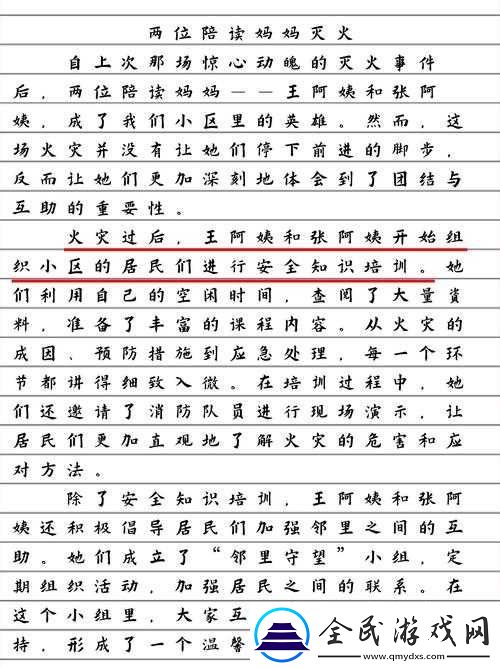 两位陪读妈妈灭火
自上次那场惊心动魄的灭火事件
后，两位陪读妈妈——王阿姨和张阿
姨，成了我们小区里的英雄。然而，这
场火灾并没有让她们停下前进的脚步，
反而让她们更加深刻地体会到了团结与
互助的重要性。
火灾过后，王阿姨和张阿姨开始组
织小区的居民们进行安全知识培训。她
们利用自己的空闲时间，查阅了大量资
料，准备了丰富的课程内容。从火灾的
成因、预防措施到应急处理，每一个环
节都讲得细致入微。在培训过程中，她
们还邀请了消防队员进行现场演示，让
居民们更加直观地了解火灾的危害和应
对方法。
除了安全知识培训，王阿姨和张阿
姨还积极倡导居民们加强邻里之间的互
助。她们成立了“邻里守望”小组，定
期组织活动，加强居民之间的联系。在
这个小组里，大家互
持，形成了一个温馨
全民游戏网
www.qmydxs.com